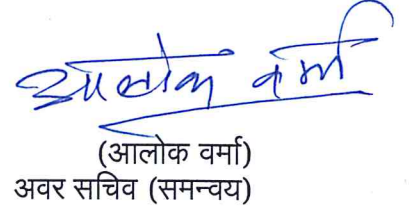 आलोक वर्मा
(आलोक वर्मा)
अवर सचिव (समन्वय)